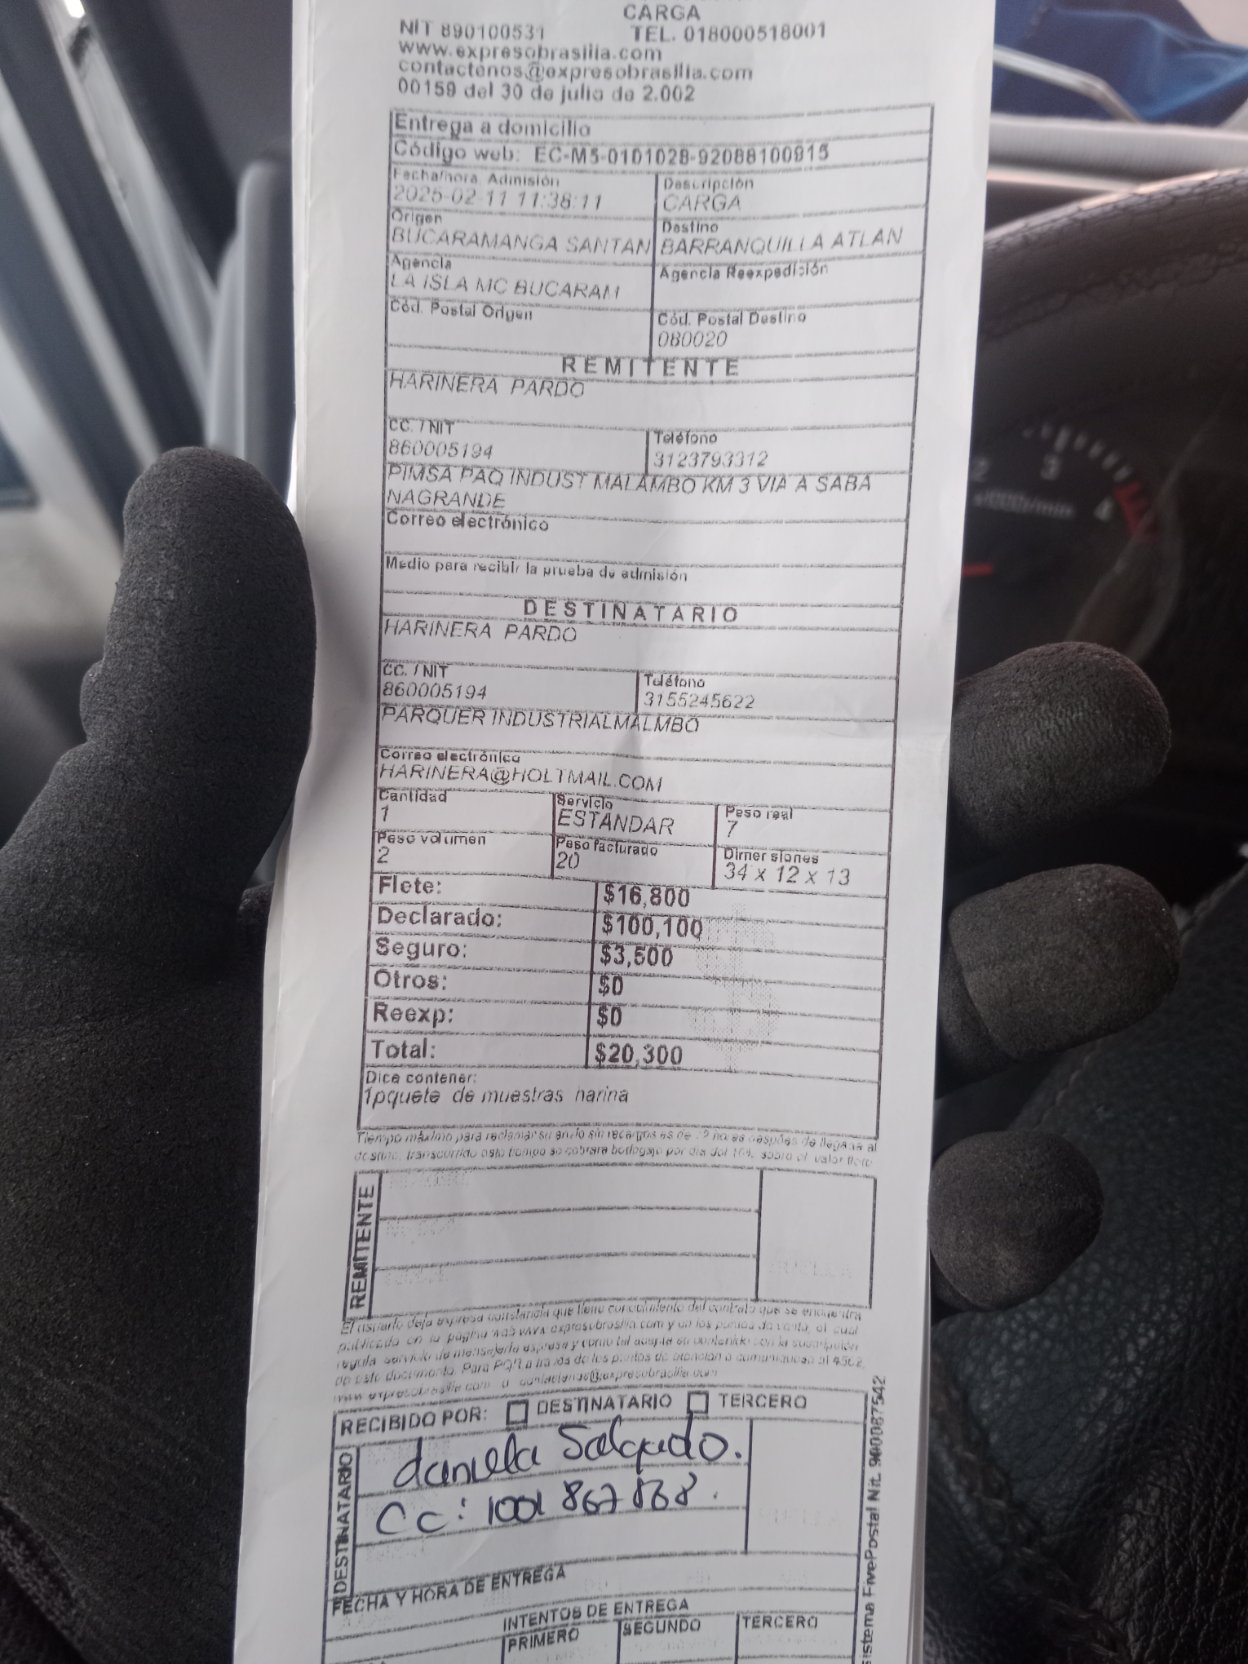 CARGA
NIT 890100531 TEL. 018000518001
www.expresobrasilia.com
contactenos@expresobrasilia.com
00159 del 30 de julio de 2.002
Entrega a domicilio
Código web: EC-M5-0101028-92088100915
Fecha/hora. Admisión Descripción
2025-02-11 11:38:11 CARGA
Origen Destino
BUCARAMANGA SANTAN BARRANQUILLA ATLAN
Agencia Agencia Reexpedición
LA ISLA MC BUCARAM
Cód. Postal Origen Cód. Postal Destino
080020
REMITENTE
HARINERA PARDO
CC. / NIT Teléfono
860005194 3123793312
PIMSA PAQ INDUST MALAMBO KM 3 VIA A SABA
NAGRANDE
Correo electrónico
Medio para recibir la prueba de admisión
DESTINATARIO
HARINERA PARDO
CC. / NIT Teléfono
860005194 3155245622
PARQUER INDUSTRIALMALMBO
Correo electrónico
HARINERA@HOLTMAIL.COM
Cantidad Servicio Peso real
1 ESTANDAR 7
Peso volumen Peso facturado Dimensiones
2 20 34 x 12 x 13
Flete: $16,800
Declarado: $100,100
Seguro: $3,500
Otros: $0
Reexp: $0
Total: $20,300
Dice contener:
1pquete de muestras harina
Tiempo máximo para reclamar su envío sin recargos es de horas después de llegada al
destino, transcurrido este tiempo se cobrará bodegaje por día del sobre el valor flete
REMITENTE
El usuario deja expresa constancia que tiene conocimiento del contrato que se encuentra
publicado en la página web www.expresobrasilia.com y en los puntos de venta, el cual
regula servicio de mensajería expresa y como tal acepta su contenido con la suscripción
de este documento. Para PQR a través de los puntos de atención o comuníquese al
www.expresobrasilia.com o contactenos@expresobrasilia.com
RECIBIDO POR: DESTINATARIO TERCERO
DESTINATARIO
daniela Salgado.
Cc: 1001 867 868.
FECHA Y HORA DE ENTREGA
INTENTOS DE ENTREGA
PRIMERO SEGUNDO TERCERO
istema FivePostal Nit. 900087542
2 3 4
1000/min